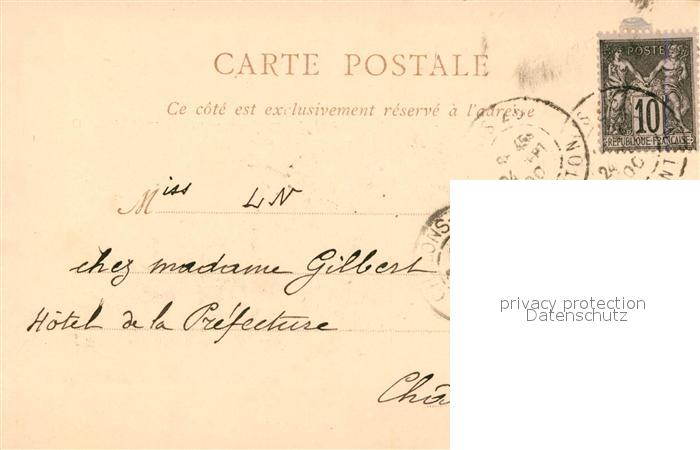 CARTE POSTALE
Ce côté est exclusivement réservé à l'adresse
POSTE
10
REPUBLIQUE FRANÇAISE
Miss LN
chez madame Gilbert
Hôtel de la Préfecture
Châ
privacy protection
Datenschutz